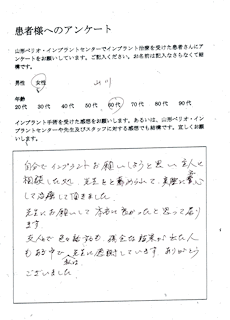 患者様へのアンケート
山形ペリオ・インプラントセンターでインプラント治療を受けた患者さんにア
ンケートをお願いしています。ご記入ください。お名前は記入なさらなくて結
構です。
男性 女性
年齢
20代 30代 40代 50代 60代 70代 80代 90代
インプラント手術を受けた感想をお願いします。あるいは、山形ペリオ・イン
プラントセンターや先生及びスタッフに対する感想でも結構です。宜しくお願
いします。
自分でインプラントお願いしようと思い 友人に
相談した処 先生をと薦められて 実際に安心
して治療して頂きました。
先生にお願いして 本当に良かったと思って居り
ます
友人で 残念な結果が出た人
もある中で 私は 先生に感謝しています ありがとう
ございました